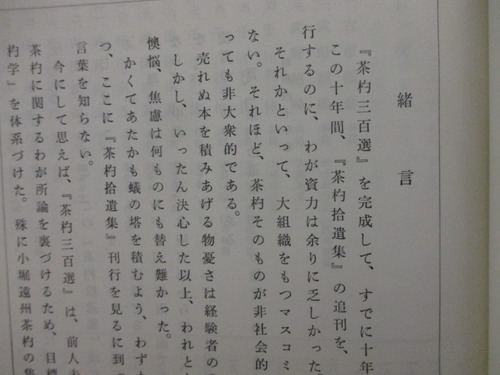 緒言
『茶杓三百選』を完成して、すでに十年
この十年間、『茶杓拾遺集』の追刊を、
行するのに、わが資力は余りに乏しかった
それかといって、大組織をもつマスコミ
ない。それほど、茶杓そのものが非社会的
っても非大衆的である。
売れぬ本を積みあげる物憂さは経験者の
しかし、いったん決心した以上、われと
懊悩、焦慮は何ものにも替え難かった。
かくてあたかも蟻の塔を積むよう、わず
つ、ここに『茶杓拾遺集』刊行を見るに到
言葉を知らない。
今にして思えば、『茶杓三百選』は、前人
茶杓に関するわが所論を裏づけるため、目標
杓学』を体系づけた。殊に小堀遠州茶杓の集